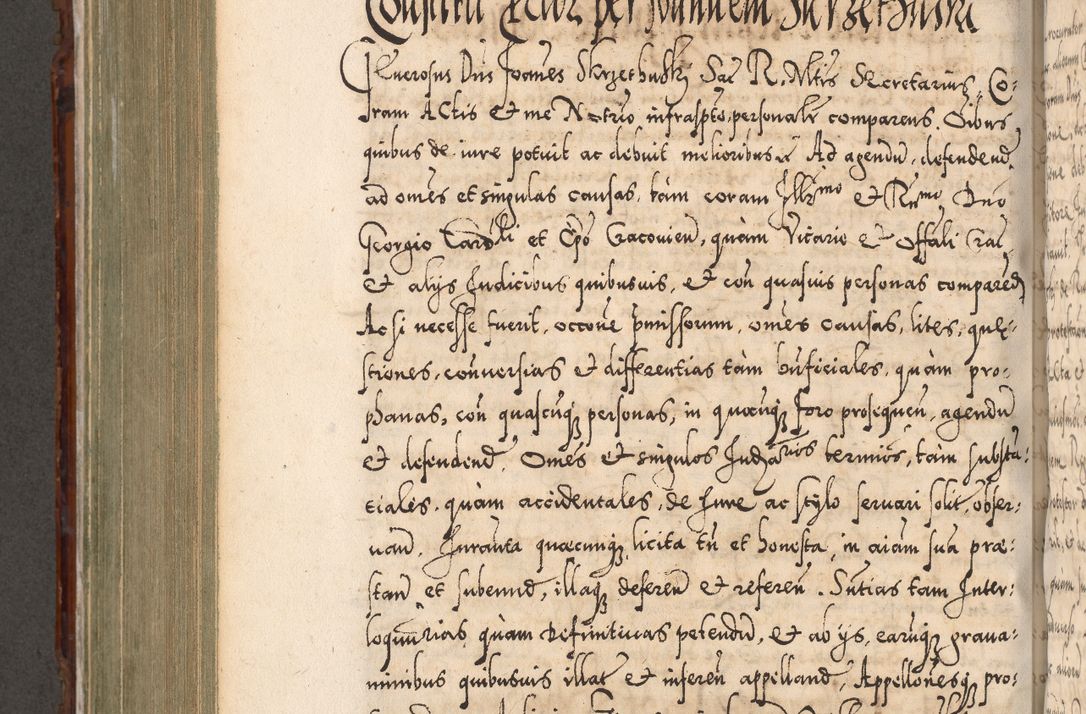 Constitu Actor per Joannem Skrzethuski
Generosus Dns Joannes Skrzethuski Sac R. Mtis Secretarius, Co-
ram Actis Et me Notrio infraspto, personalr comparens. Oibus
quibus de iure potuit ac debuit melioribus Ad agendu, defendend
ad omes et singulas causas, tam coram Illrmo et Rmo Dno
Georgio Cardli et Epo Cracovien, quam Vicario et Offali Grali
Et alijs Judicibus quibusuis, et con quasuis personas comparend
Ac si necesse fuerit, occone pmissorum, omes causas, lites, que-
stiones, conuersias Et differentias tam bnficiales, quam pro-
phanas, con quascuq personas, in quocuq foro prosequen, agendu
et defendend. Omes Et singulos Judrios terminos, tam substa-
tiales, quam accidentales, de Jure ac stylo seruari solit, obser-
uand. Juranta quaecunq licita tn et honesta, in aiam sua prae-
stan et subeund, illaq deferen Et referen. Sntias tam Inter-
loquurias quam definitiuas petendu, Et ab ijs, earuq graua-
minibus quibusuis illat et inferen appelland, Appellonesq pro-